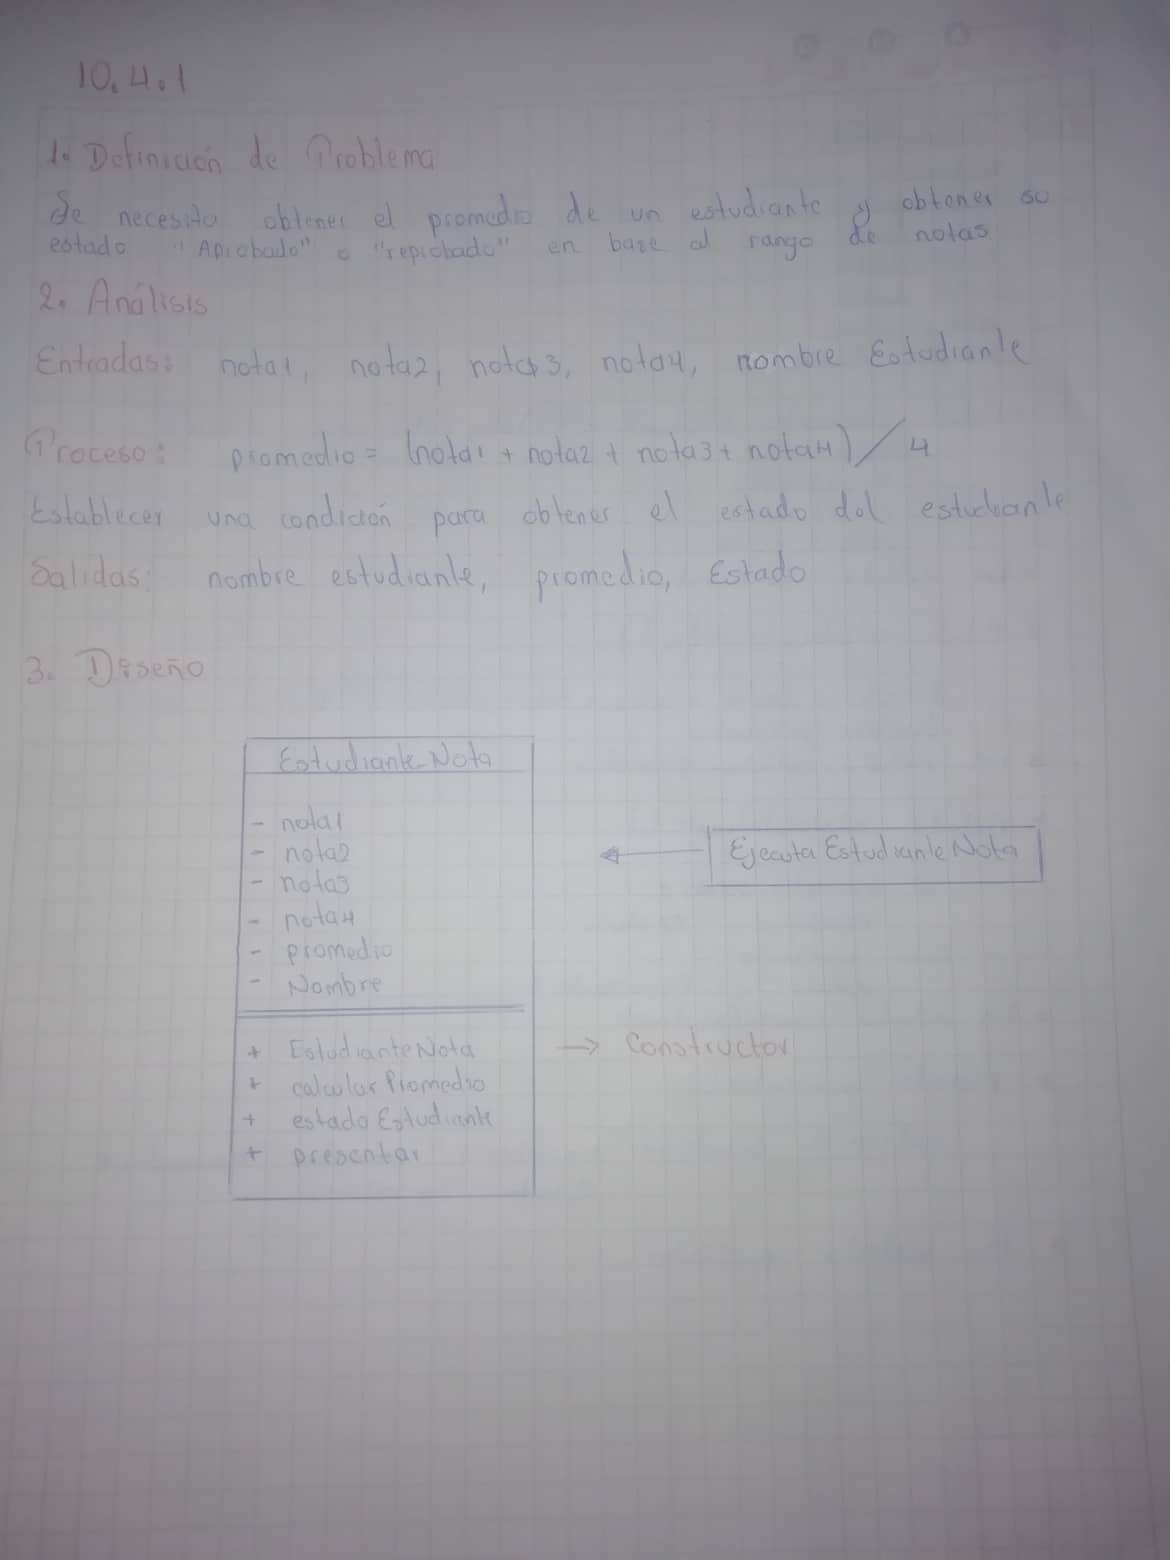 10.4.1
1. Definición de Problema
Se necesita obtener el promedio de un estudiante y obtener su
estado "Aprobado" o "reprobado" en base al rango de notas
2. Análisis
Entradas: nota1, nota2, nota3, nota4, nombre Estudiante
Proceso: promedio = (nota1 + nota2 + nota3 + nota4) / 4
Establecer una condición para obtener el estado del estudiante
Salidas: nombre estudiante, promedio, Estado
3. Diseño
EstudianteNota
- nota1
- nota2
- nota3
- nota4
- promedio
- Nombre
← Ejecuta EstudianteNota
+ EstudianteNota → Constructor
+ calcular Promedio
+ estado Estudiante
+ presentar